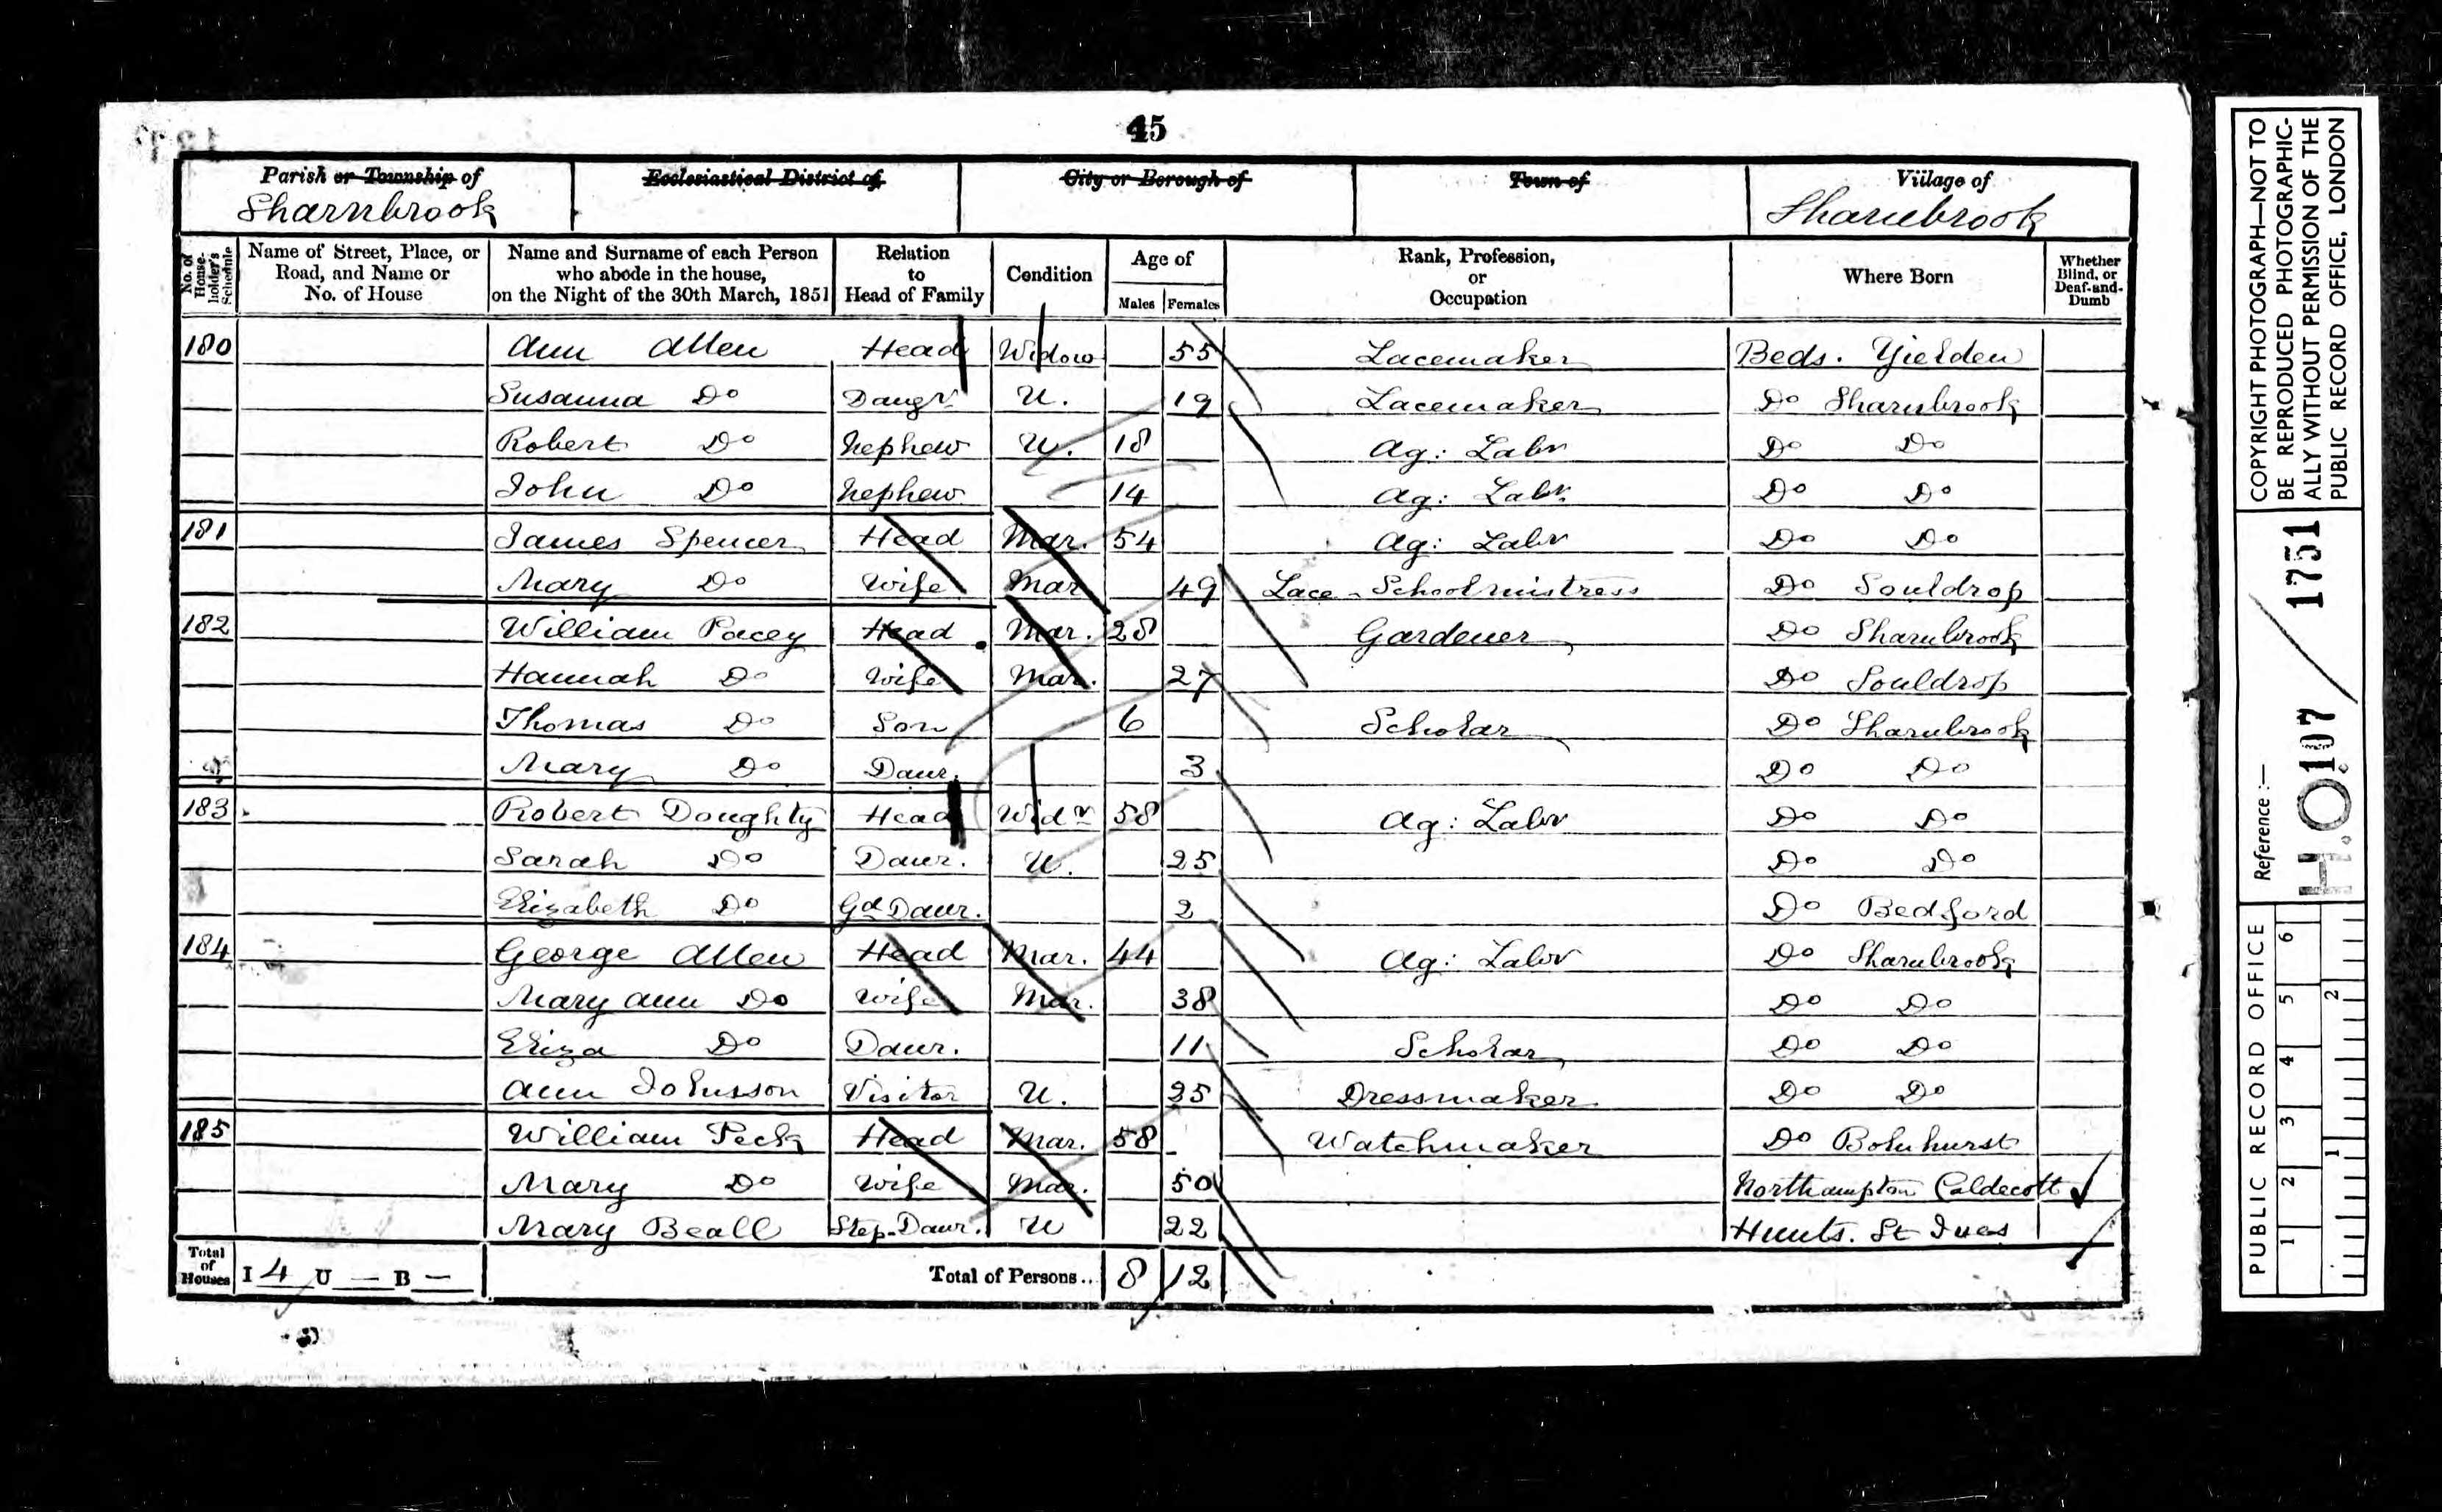 45
Parish or Township of Ecclesiastical District of City or Borough of Town of Village of
Sharnbrook Sharnbrook
No. of House-holder's Schedule Name of Street, Place, or Road, and Name or No. of House Name and Surname of each Person who abode in the house, on the Night of the 30th March, 1851 Relation to Head of Family Condition Age of Males Females Rank, Profession, or Occupation Where Born Whether Blind, or Deaf-and-Dumb
180 Ann Allen Head Widow 55 Lacemaker Beds. Yielden
Susanna Do Daugr U. 19 Lacemaker Do Sharnbrook
Robert Do Nephew U. 18 Ag: Labr Do Do
John Do Nephew 14 Ag: Labr Do Do
181 James Spencer Head Mar. 54 Ag: Labr Do Do
Mary Do Wife Mar 49 Lace-Schoolmistress Do Souldrop
182 William Pacey Head Mar. 28 Gardener Do Sharnbrook
Hannah Do Wife Mar. 27 Do Souldrop
Thomas Do Son 6 Scholar Do Sharnbrook
Mary Do Daur. 3 Do Do
183 Robert Doughty Head Widr 58 Ag: Labr Do Do
Sarah Do Daur. U. 25 Do Do
Elizabeth Do Gd Daur. 2 Do Bedford
184 George Allen Head Mar. 44 Ag: Labr Do Sharnbrook
Mary Ann Do Wife Mar. 38 Do Do
Eliza Do Daur. 11 Scholar Do Do
Ann Johnson Visitor U. 25 Dressmaker Do Do
185 William Peck Head Mar. 58 Watchmaker Do Bolnhurst
Mary Do Wife Mar. 50 Northampton Caldecott
Mary Beall Step-Daur. U 22 Hunts. St Ives
Total of Houses I 4 U — B — Total of Persons.. 8 12
COPYRIGHT PHOTOGRAPH—NOT TO
BE REPRODUCED PHOTOGRAPHIC-
ALLY WITHOUT PERMISSION OF THE
PUBLIC RECORD OFFICE, LONDON
Reference:—
H.O.107 / 1751
PUBLIC RECORD OFFICE
1 2 3 4 5 6
1 2